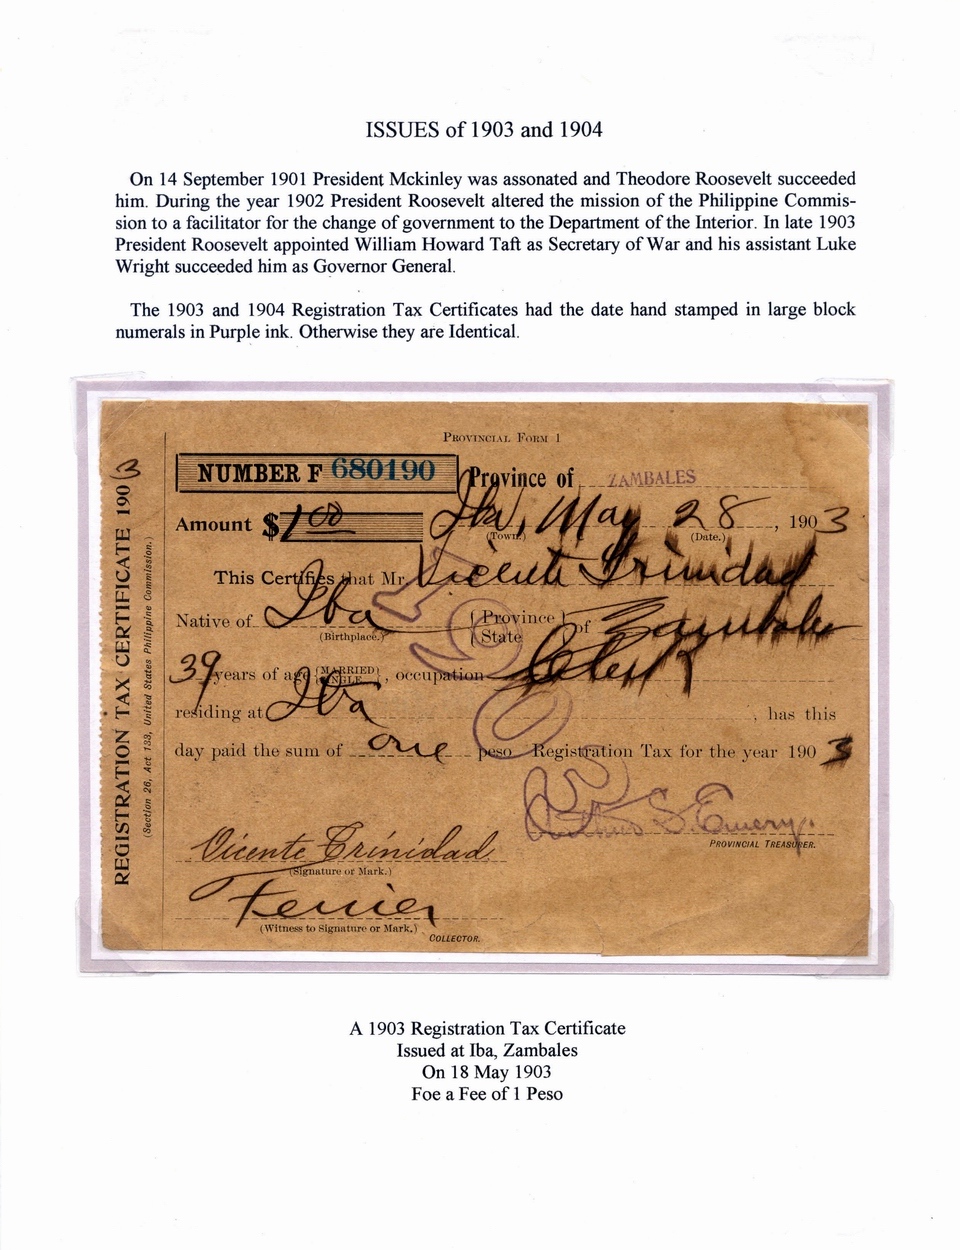 ISSUES of 1903 and 1904
On 14 September 1901 President Mckinley was assonated and Theodore Roosevelt succeeded
him. During the year 1902 President Roosevelt altered the mission of the Philippine Commis-
sion to a facilitator for the change of government to the Department of the Interior. In late 1903
President Roosevelt appointed William Howard Taft as Secretary of War and his assistant Luke
Wright succeeded him as Governor General.
The 1903 and 1904 Registration Tax Certificates had the date hand stamped in large block
numerals in Purple ink. Otherwise they are Identical.
REGISTRATION TAX CERTIFICATE 1903
(Section 26, Act 133, United States Philippine Commission.)
PROVINCIAL FORM 1
NUMBER F 680190 Province of ZAMBALES
Amount $1.00 Iba, May 28, 1903
(Town.) (Date.)
This Certifies that Mr. Vicente Trinidad
Native of Iba (Province State) of Zambales
(Birthplace.)
39 years of age (MARRIED SINGLE), occupation Clerk
residing at Iba, has this
day paid the sum of one peso Registration Tax for the year 1903
Vicente Trinidad S. Emery.
(Signature or Mark.) PROVINCIAL TREASURER.
(Witness to Signature or Mark.)
COLLECTOR.
A 1903 Registration Tax Certificate
Issued at Iba, Zambales
On 18 May 1903
Foe a Fee of 1 Peso